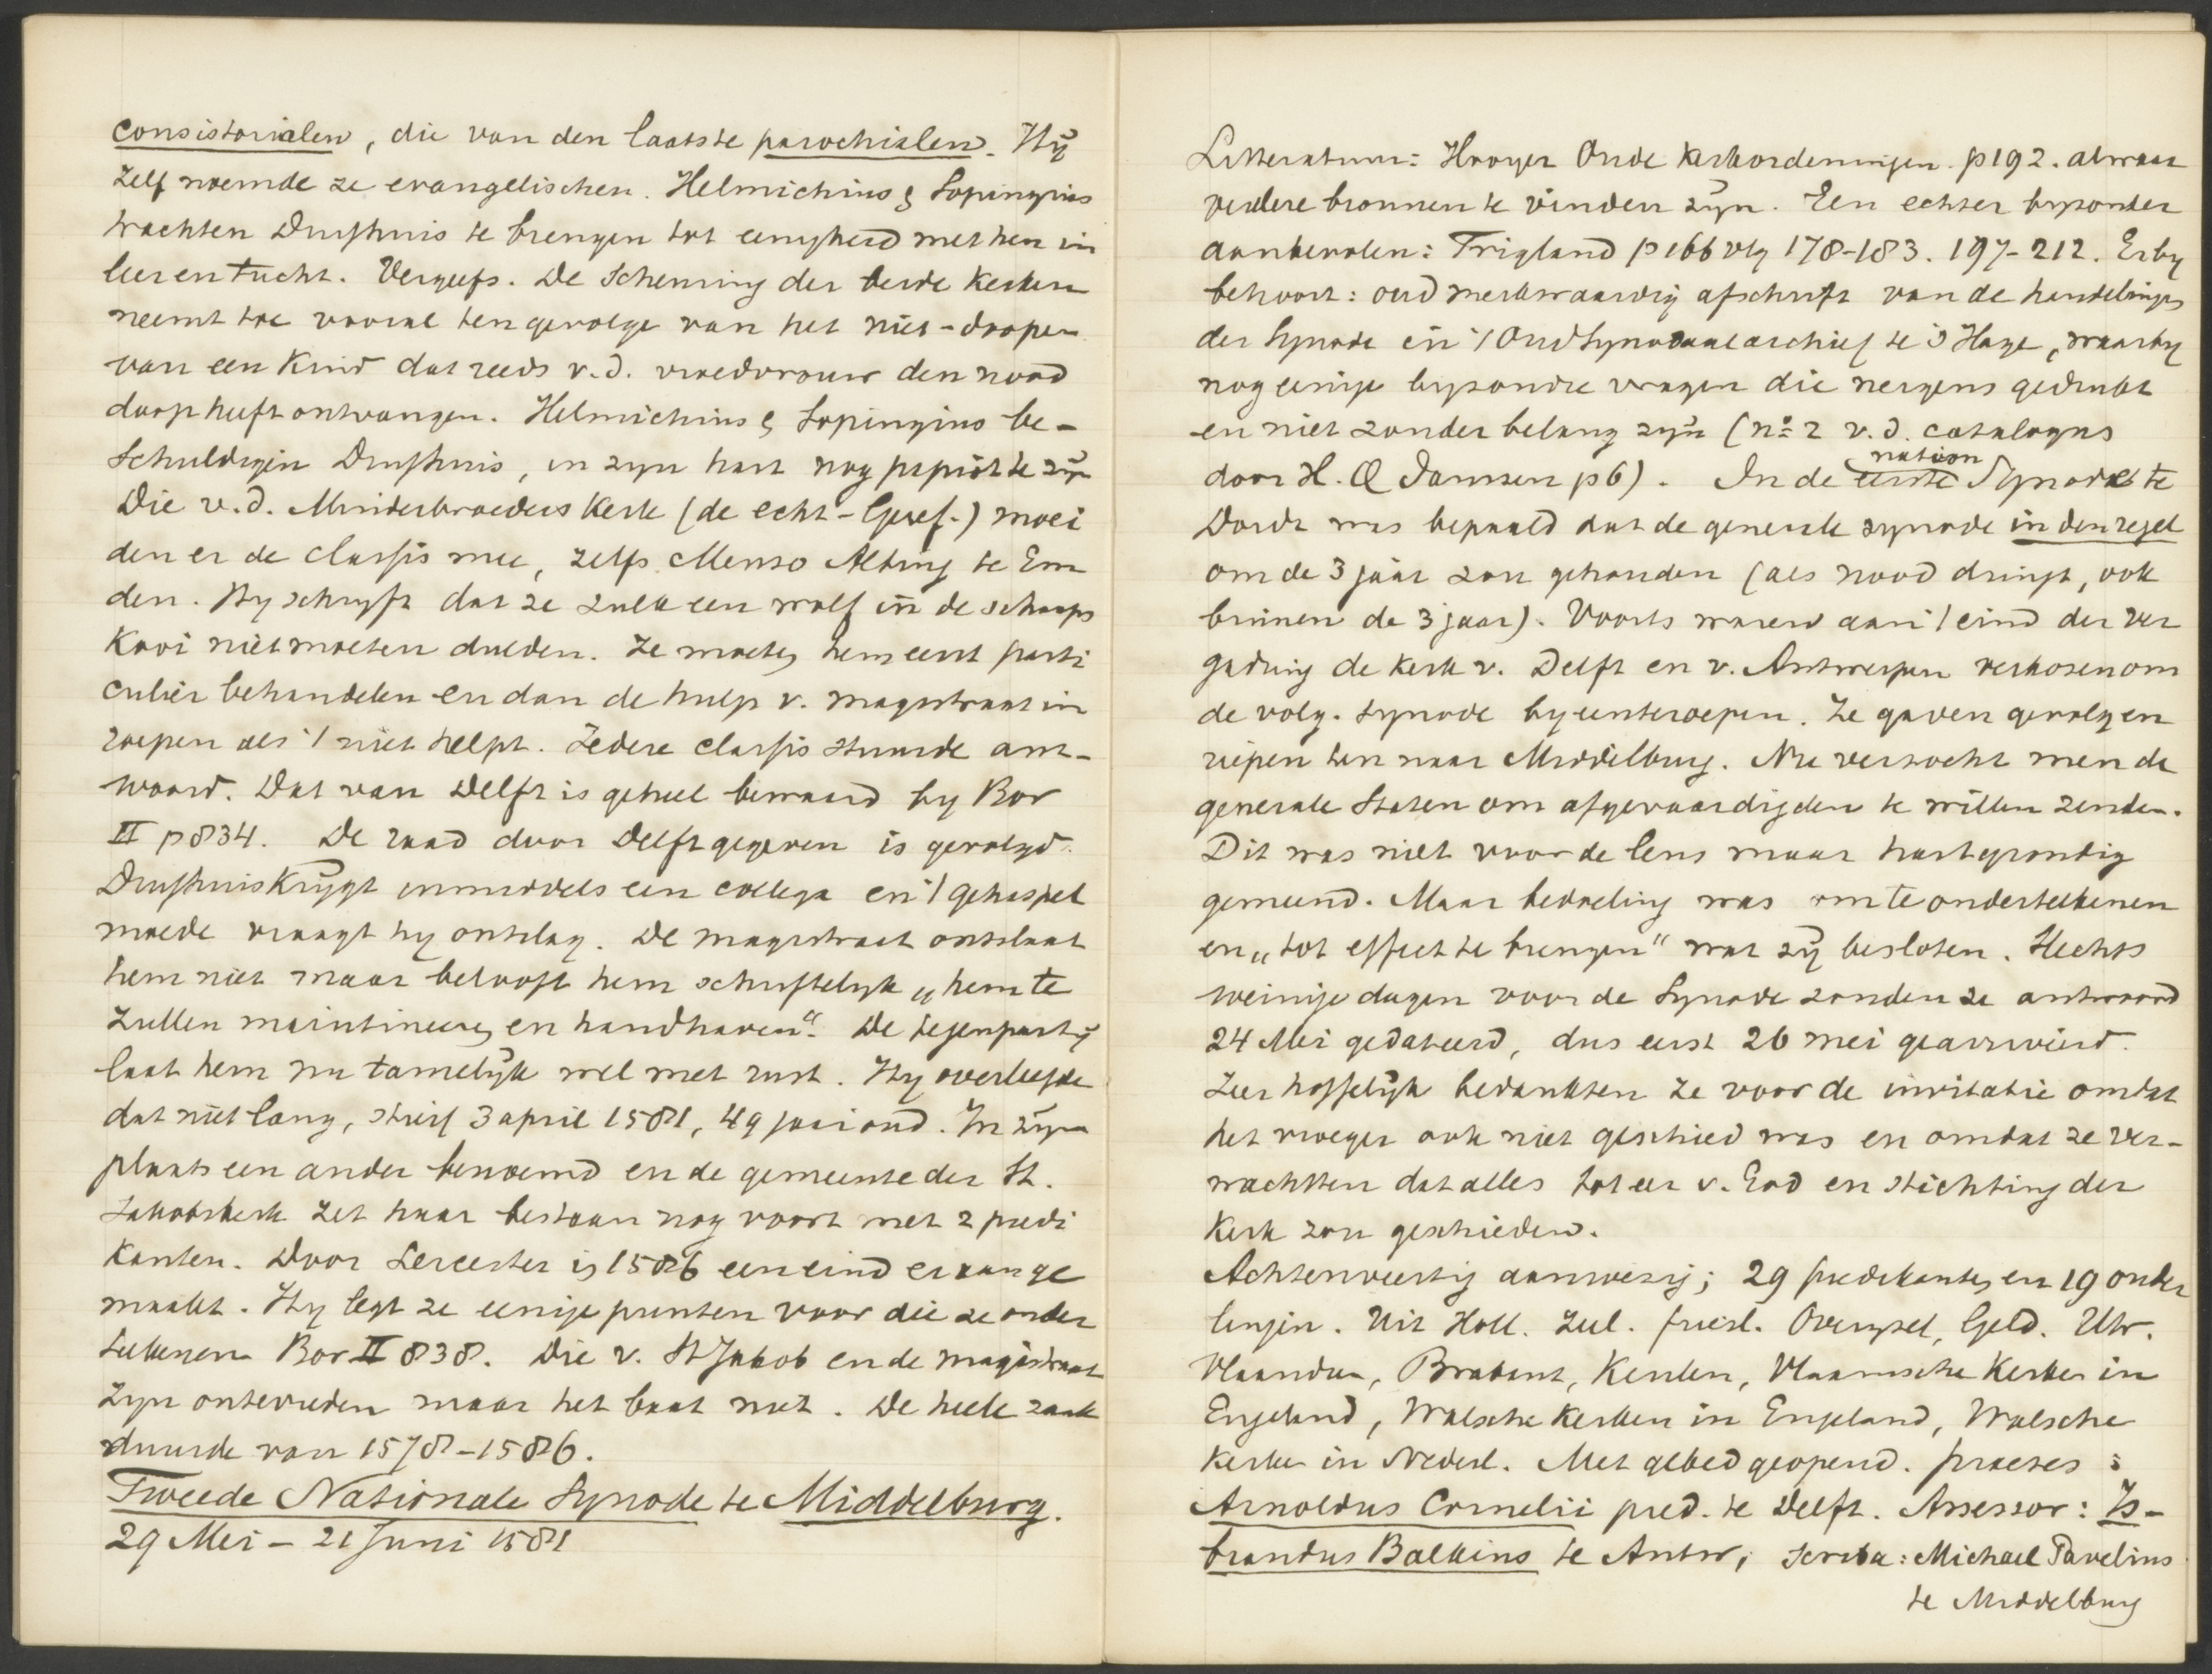 consistorialen, die van den laatste parochialen. Hij
zelf noemde ze evangelischen. Helmichius & Sopingius
trachten Duifhuis te brengen tot eenigheid met hen in
leer en tucht. Vergeefs. De scheuring der beide kerken
neemt toe vooral ten gevolge van het niet-doopen
van een kind dat reeds v.d. vroedvrouw den nood
doop heeft ontvangen. Helmichius & Sopingius be-
schuldigen Duifhuis, in zijn hart nog papist te zijn
Die v.d. Minderbroeders kerk (de echt-Geref.) moei
den er de classis mee, zelfs Menso Alting te Em
den. Hy schryft dat ze zulk een wolf in de schaaps
kooi niet moeten dulden. Ze moeten hem eerst parti
culier behandelen en dan de hulp v. magistraat in
roepen als 't niet helpt. Iedere classis stuurde ant-
woord. Dat van Delft is geheel bewaard by Bor
II p 834. De raad door Delft gegeven is gevolgd.
Duifhuis krijgt inmiddels een collega en 't gehaspel
moede vraagt hy ontslag. De magistraat ontslaat
hem niet maar belooft hem schriftelyk „hem te
zullen maintineeren en handhaven“. De tegenpartij
laat hem nu tamelijk wel met rust. Hy overleefde
dat niet lang, stierf 3 april 1581, 49 jaar oud. In zijn
plaats een ander benoemd en de gemeente der St.
Jakobskerk zet haar bestaan nog voort met 2 predi
kanten. Door Leicester is 1586 een eind er aan ge
maakt. Hy legt ze eenige punten voor die ze onder
teekenen Bor II 838. Die v. St Jakob en de magistraat
zyn ontevreden maar het baat niet. De heele zaak
duurde van 1578-1586.
Tweede Nationale Synode te Middelburg.
29 Mei - 21 Juni 1581
Litteratuur: Hooyer Oude Kerkordeningen. p 192. alwaar
verdere bronnen te vinden zyn. Een echter byzonder
aanbevolen: Trigland p 166 vlg 178-183. 197-212. Erby
behoort: oud merkwaardig afschrift van de handelingen
der Synode in 't Oud Synodaal archief te 's Hage, waarby
nog eenige byzondre vragen die nergens gedrukt
en niet zonder belang zijn (no 2 v.d. catalogus
door H. Q Janssen p 6). In de eerste nation Synode te
Dordt was bepaald dat de generale synode in den regel
om de 3 jaar zou gehouden (als nood dringt, ook
binnen de 3 jaar). Voorts waren aan 't eind der ver
gadring de kerk v. Delft en v. Antwerpen verkozen om
de volg. synode byeenteroepen. Ze gaven gevolg en
riepen hen naar Middelburg. Nu verzocht men de
generale Staten om afgevaardigden te willen zenden.
Dit was niet voor de leus maar hartgrondig
gemeend. Maar bedoeling was om te onderteekenen
en „tot effect te brengen“ wat zij besloten. Slechts
weinige dagen voor de Synode zonden ze antwoord
24 Mei gedateerd, dus eerst 26 mei gearriveerd.
Zeer hoffelijk bedankten ze voor de invitatie omdat
het vroeger ook niet geschied was en omdat ze ver-
wachtten dat alles tot eer v. God en stichting der
kerk zou geschieden.
Achtenveertig aanwezig; 29 predikanten en 19 ouder
lingen. Uit Holl. Zeel. friesl. Overysel, Geld. Utr.
Vlaandren, Brabant, Keulen, Vlaamsche kerken in
Engeland, Walsche kerken in Engeland, Walsche
kerken in Nederl. Met gebed geopend. praeses :
Arnoldus Cornelii pred. te Delft. Assessor: Is-
brandus Balkius te Antw; scriba: Michael Panelius
te Middelburg